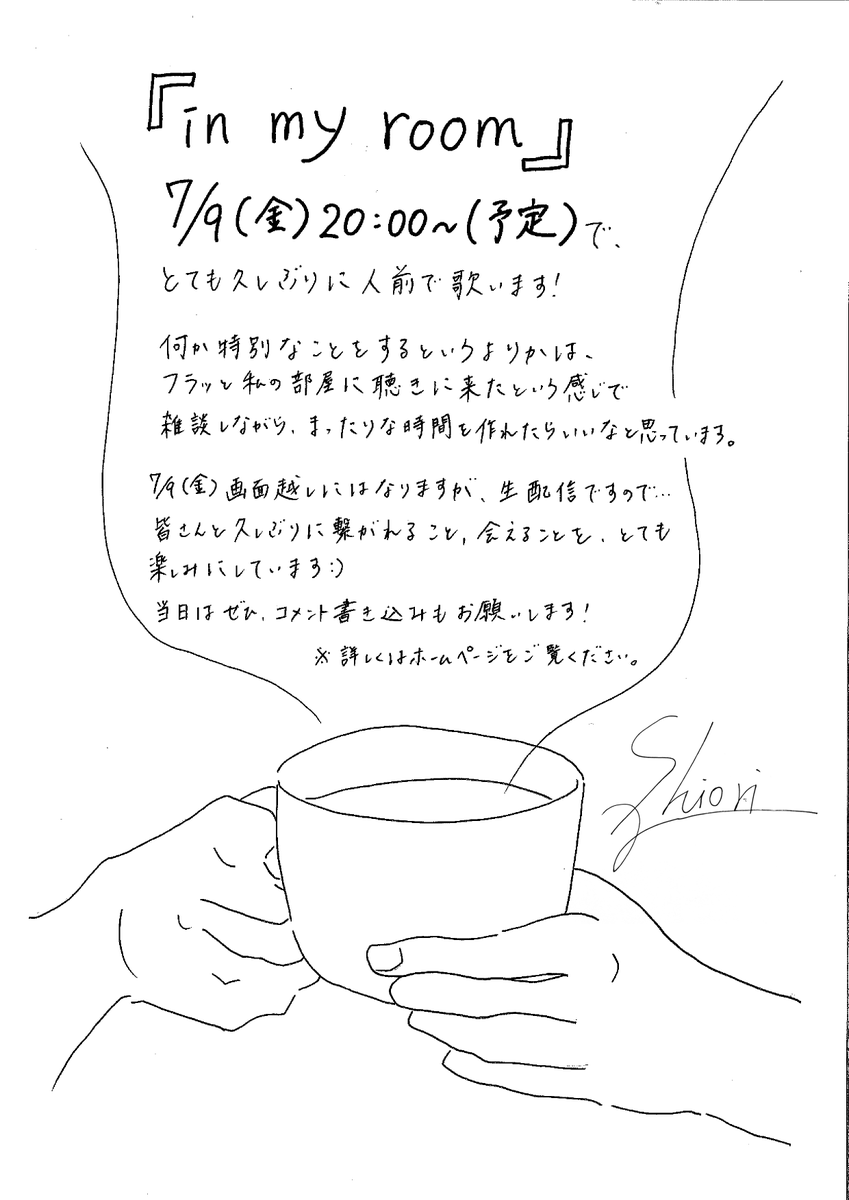 『in my room』
7/9(金)20:00~(予定)で、
とても久しぶりに人前で歌います!
何か特別なことをするというよりかは、
フラッと私の部屋に聴きに来たという感じで
雑談しながら、まったりな時間を作れたらいいなと思っています。
7/9(金)画面越しにはなりますが、生配信ですので…
皆さんと久しぶりに繋がれること、会えることを、とても
楽しみにしています:)
当日はぜひ、コメント書き込みもお願いします!
※詳しくはホームページをご覧ください。
Shiori